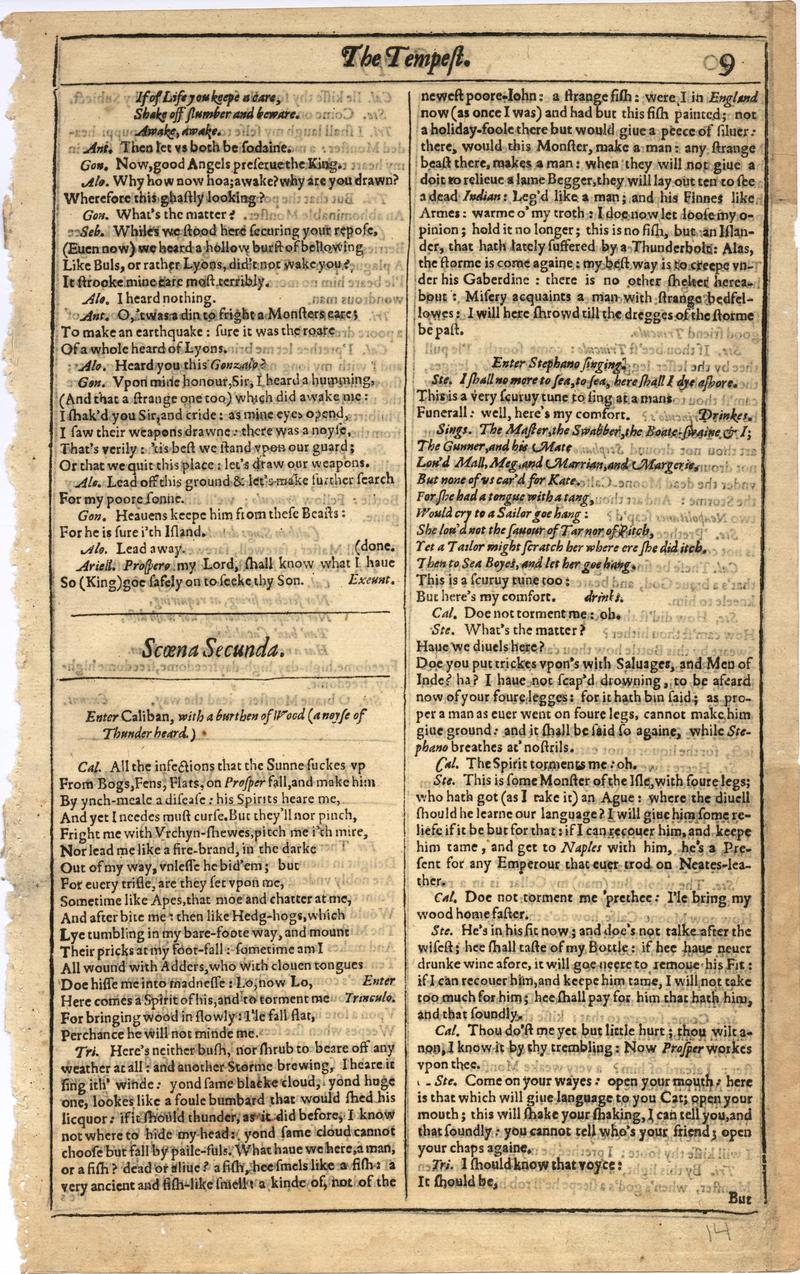 The Tempeſt.
9
If of Life you keepe a care,
Shake off ſlumber and beware.
Awake, awake.
Ant. Then let vs both be ſodaine.
Gon. Now, good Angels preſerue the King.
Alo. Why how now hoa; awake? why are you drawn?
Wherefore this ghaſtly looking?
Gon. What's the matter?
Seb. Whiles we ſtood here ſecuring your repoſe,
(Euen now) we heard a hollow burſt of bellowing
Like Buls, or rather Lyons, did't not wake you?
It ſtrooke mine eare moſt terribly.
Alo. I heard nothing.
Ant. O, 'twas a din to fright a Monſters eare;
To make an earthquake: ſure it was the roare
Of a whole heard of Lyons.
Alo. Heard you this Gonzalo?
Gon. Vpon mine honour, Sir, I heard a humming,
(And that a ſtrange one too) which did awake me:
I ſhak'd you Sir, and cride: as mine eyes opend,
I ſaw their weapons drawne: there was a noyſe,
That's verily: 'tis beſt we ſtand vpon our guard;
Or that we quit this place: let's draw our weapons.
Alo. Lead off this ground & let's make further ſearch
For my poore ſonne.
Gon. Heauens keepe him from theſe Beaſts:
For he is ſure i'th Iſland.
Alo. Lead away. (done.
Ariell. Proſpero my Lord, ſhall know what I haue
So (King) goe ſafely on to ſeeke thy Son. Exeunt.
Scœna Secunda.
Enter Caliban, with a burthen of Wood (a noyſe of
Thunder heard.)
Cal. All the infections that the Sunne ſuckes vp
From Bogs, Fens, Flats, on Proſper fall, and make him
By ynch-meale a diſeaſe: his Spirits heare me,
And yet I needes muſt curſe. But they'll nor pinch,
Fright me with Vrchyn-ſhewes, pitch me i'th mire,
Nor lead me like a fire-brand, in the darke
Out of my way, vnleſſe he bid 'em; but
For euery trifle, are they ſet vpon me,
Sometime like Apes, that moe and chatter at me,
And after bite me: then like Hedg-hogs, which
Lye tumbling in my bare-foote way, and mount
Their pricks at my foot-fall: ſometime am I
All wound with Adders, who with clouen tongues
Doe hiſſe me into madneſſe: Lo, now Lo, Enter
Here comes a Spirit of his, and to torment me Trinculo.
For bringing wood in ſlowly: I'le fall flat,
Perchance he will not minde me.
Tri. Here's neither buſh, nor ſhrub to beare off any
weather at all: and another Storme brewing, I heare it
ſing ith' winde: yond ſame blacke cloud, yond huge
one, lookes like a foule bumbard that would ſhed his
licquor: if it ſhould thunder, as it did before, I know
not where to hide my head: yond ſame cloud cannot
chooſe but fall by paile-fuls. What haue we here, a man,
or a fiſh? dead or aliue? a fiſh, hee ſmels like a fiſh: a
very ancient and fiſh-like ſmell: a kinde of, not of the
neweſt poore-Iohn: a ſtrange fiſh: were I in England
now (as once I was) and had but this fiſh painted; not
a holiday-foole there but would giue a peece of ſiluer:
there, would this Monſter, make a man: any ſtrange
beaſt there, makes a man: when they will not giue a
doit to relieue a lame Begger, they will lay out ten to ſee
a dead Indian: Leg'd like a man; and his Finnes like
Armes: warme o'my troth: I doe now let looſe my o-
pinion; hold it no longer; this is no fiſh, but an Iſlan-
der, that hath lately ſuffered by a Thunderbolt: Alas,
the ſtorme is come againe: my beſt way is to creepe vn-
der his Gaberdine: there is no other ſhelter herea-
bout: Miſery acquaints a man with ſtrange bedfel-
lowes: I will here ſhrowd till the dregges of the ſtorme
be paſt.
Enter Stephano ſinging.
Ste. I ſhall no more to ſea, to ſea, here ſhall I dye aſhore.
This is a very ſcuruy tune to ſing at a mans
Funerall: well, here's my comfort. Drinkes.
Sings. The Maſter, the Swabber, the Boate-ſwaine, & I;
The Gunner, and his Mate
Lou'd Mall, Meg, and Marrian, and Margerie,
But none of vs car'd for Kate.
For ſhe had a tongue with a tang,
Would cry to a Sailor goe hang:
She lou'd not the ſauour of Tar nor of Pitch,
Yet a Tailor might ſcratch her where ere ſhe did itch.
Then to Sea Boyes, and let her goe hang.
This is a ſcuruy tune too:
But here's my comfort. drinks.
Cal. Doe not torment me: oh.
Ste. What's the matter?
Haue we diuels here?
Doe you put trickes vpon's with Saluages, and Men of
Inde? ha? I haue not ſcap'd drowning, to be afeard
now of your foure legges: for it hath bin ſaid; as pro-
per a man as euer went on foure legs, cannot make him
giue ground: and it ſhall be ſaid ſo againe, while Ste-
phano breathes at' noſtrils.
Cal. The Spirit torments me: oh.
Ste. This is ſome Monſter of the Iſle, with foure legs;
who hath got (as I take it) an Ague: where the diuell
ſhould he learne our language? I will giue him ſome re-
liefe if it be but for that: if I can recouer him, and keepe
him tame, and get to Naples with him, he's a Pre-
ſent for any Emperour that euer trod on Neates-lea-
ther.
Cal. Doe not torment me 'prethee: I'le bring my
wood home faſter.
Ste. He's in his fit now; and doe's not talke after the
wiſeſt; hee ſhall taſte of my Bottle: if hee haue neuer
drunke wine afore, it will goe neere to remoue his Fit:
if I can recouer him, and keepe him tame, I will not take
too much for him; hee ſhall pay for him that hath him,
and that ſoundly.
Cal. Thou do'ſt me yet but little hurt; thou wilt a-
non, I know it by thy trembling: Now Proſper workes
vpon thee.
Ste. Come on your wayes: open your mouth: here
is that which will giue language to you Cat; open your
mouth; this will ſhake your ſhaking, I can tell you, and
that ſoundly: you cannot tell who's your friend; open
your chaps againe.
Tri. I ſhould know that voyce:
It ſhould be,
But
14